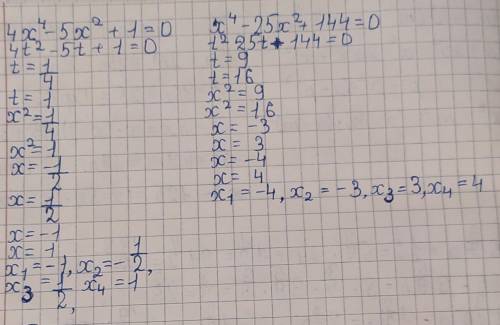 4x⁴-5x²+1=0
4t²-5t+1=0
t=1/4
t=1
x²=1/4
x²=1
x=-1/2
x=1/2
x=-1
x=1
x₁=-1, x₂=-1/2,
x₃=1/2, x₄=1
x⁴-25x²+144=0
t²25t+144=0
t=9
t=16
x²=9
x²=16
x=-3
x=3
x=-4
x=4
x₁=-4, x₂=-3, x₃=3, x₄=4